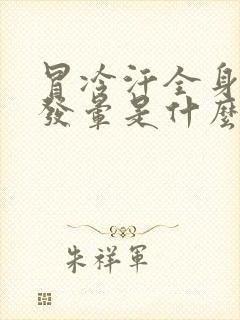 冒冷汗全身
發暈是什麼
朱祥軍